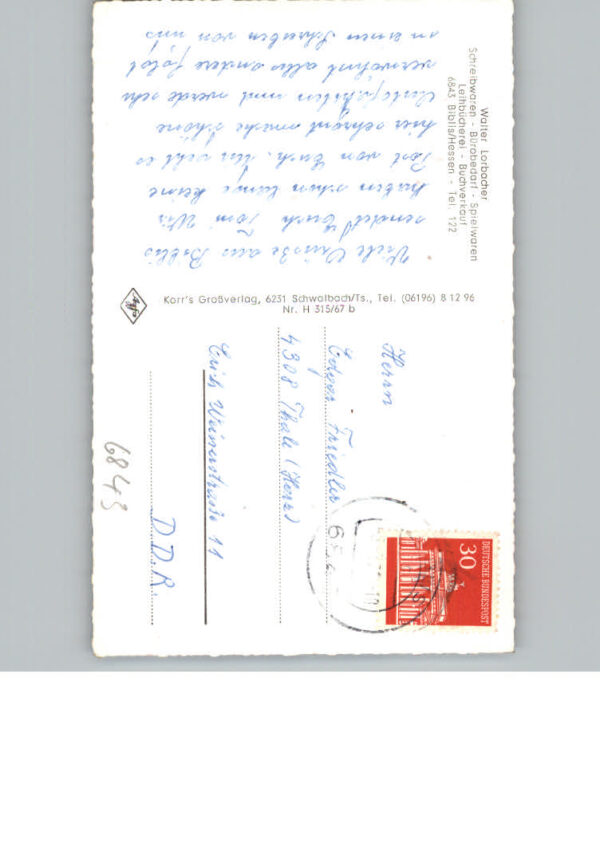 Walter Lorbacher
Schreibwaren - Bürobedarf - Spielwaren
Leihbücherei - Buchverkauf
6843 Biblis/Hessen - Tel. 122
Viele Grüsse aus Biblis
sendet Euch Toni Wir
haben schon lange keine
Post von Euch.
hier mache schöne
Autofahrten und werde sehr
verwöhnt alles andere folgt
in einem Schreiben von uns
Agfa
Korr's Großverlag, 6231 Schwalbach/Ts., Tel. (06196) 8 12 96
Nr. H 315/67 b
30
DEUTSCHE BUNDESPOST
Herrn
Edgar Friedler
4308 Thale (Harz)
Erich Weinertstraße 11
D.D.R.
6843